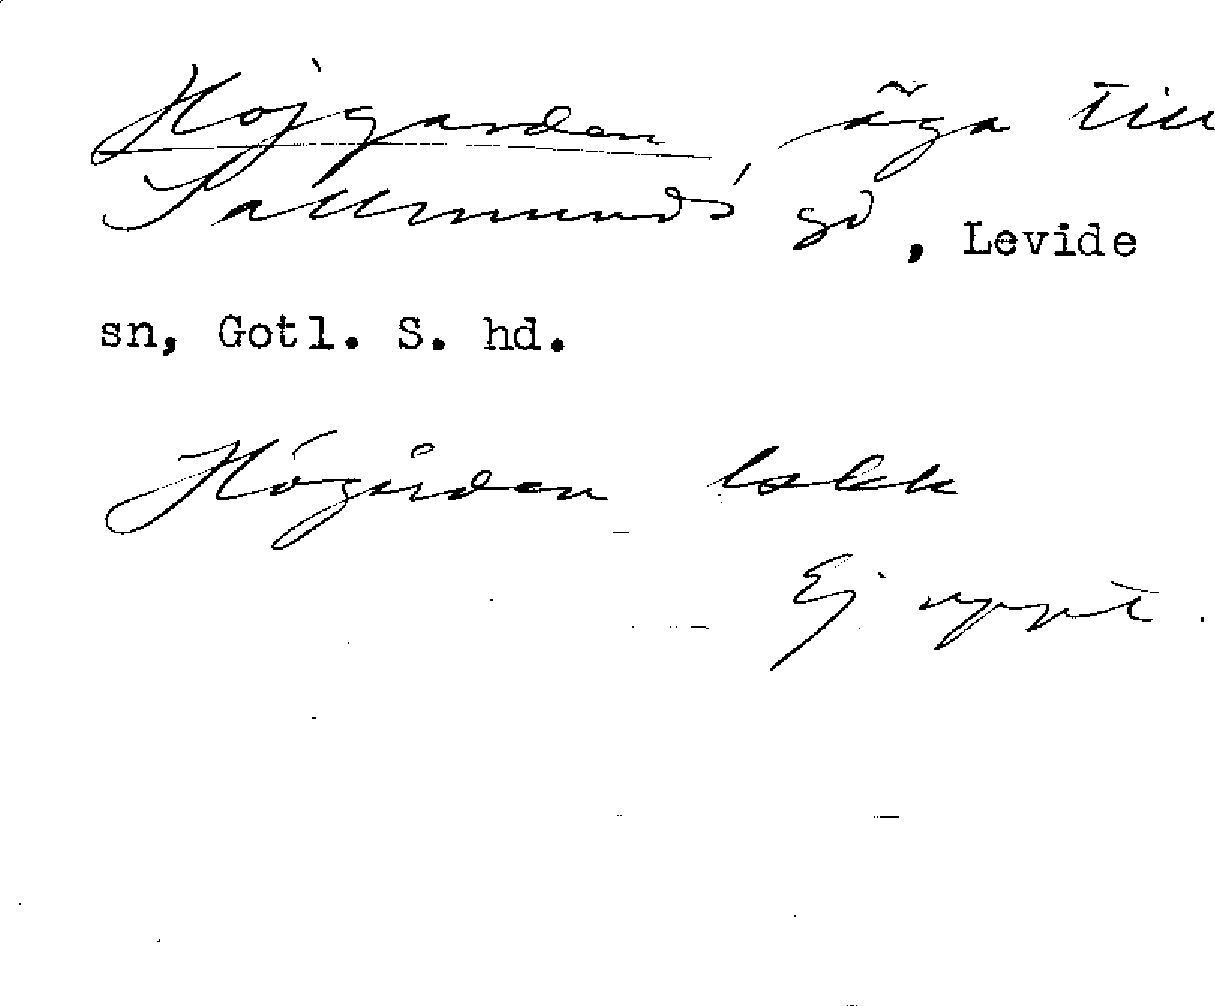 Hojgarden, äga till
Sallmunds gd, Levide
sn, Gotl. S. hd.
Högården
Ej uppt.